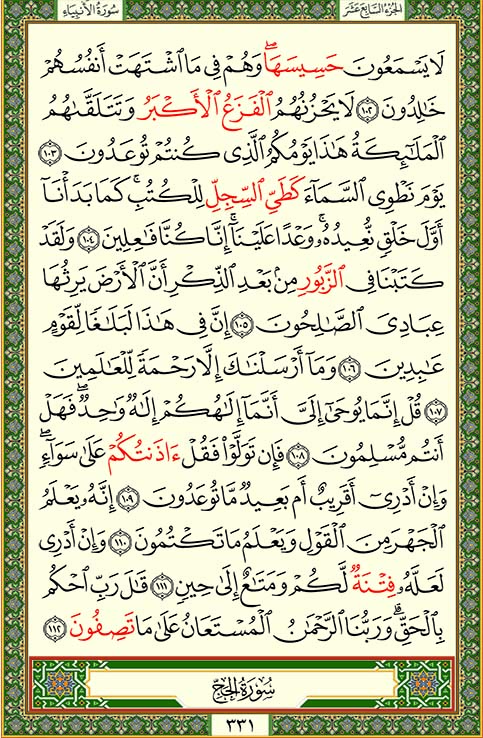 سُورَةُ الأَنبِيَاءِ الجُزءُ السَّابِعَ عَشَرَ
لَا يَسْمَعُونَ حَسِيسَهَاۖ وَهُمْ فِى مَا ٱشْتَهَتْ أَنفُسُهُمْ
خَـٰلِدُونَ ١٠٢ لَا يَحْزُنُهُمُ ٱلْفَزَعُ ٱلْأَكْبَرُ وَتَتَلَقَّىٰهُمُ
ٱلْمَلَـٰٓئِكَةُ هَـٰذَا يَوْمُكُمُ ٱلَّذِى كُنتُمْ تُوعَدُونَ ١٠٣
يَوْمَ نَطْوِى ٱلسَّمَآءَ كَطَىِّ ٱلسِّجِلِّ لِلْكُتُبِۚ كَمَا بَدَأْنَآ
أَوَّلَ خَلْقٍ نُّعِيدُهُۥۚ وَعْدًا عَلَيْنَآۚ إِنَّا كُنَّا فَـٰعِلِينَ ١٠٤ وَلَقَدْ
كَتَبْنَا فِى ٱلزَّبُورِ مِنۢ بَعْدِ ٱلذِّكْرِ أَنَّ ٱلْأَرْضَ يَرِثُهَا
عِبَادِىَ ٱلصَّـٰلِحُونَ ١٠٥ إِنَّ فِى هَـٰذَا لَبَلَـٰغًا لِّقَوْمٍ
عَـٰبِدِينَ ١٠٦ وَمَآ أَرْسَلْنَـٰكَ إِلَّا رَحْمَةً لِّلْعَـٰلَمِينَ
١٠٧ قُلْ إِنَّمَا يُوحَىٰٓ إِلَىَّ أَنَّمَآ إِلَـٰهُكُمْ إِلَـٰهٌ وَٰحِدٌۖ فَهَلْ
أَنتُم مُّسْلِمُونَ ١٠٨ فَإِن تَوَلَّوْا۟ فَقُلْ ءَاذَنتُكُمْ عَلَىٰ سَوَآءٍۖ
وَإِنْ أَدْرِىٓ أَقَرِيبٌ أَم بَعِيدٌ مَّا تُوعَدُونَ ١٠٩ إِنَّهُۥ يَعْلَمُ
ٱلْجَهْرَ مِنَ ٱلْقَوْلِ وَيَعْلَمُ مَا تَكْتُمُونَ ١١٠ وَإِنْ أَدْرِى
لَعَلَّهُۥ فِتْنَةٌ لَّكُمْ وَمَتَـٰعٌ إِلَىٰ حِينٍ ١١١ قَـٰلَ رَبِّ ٱحْكُم
بِٱلْحَقِّۗ وَرَبُّنَا ٱلرَّحْمَـٰنُ ٱلْمُسْتَعَانُ عَلَىٰ مَا تَصِفُونَ ١١٢
سُورَةُ الحَجِّ
٣٣١